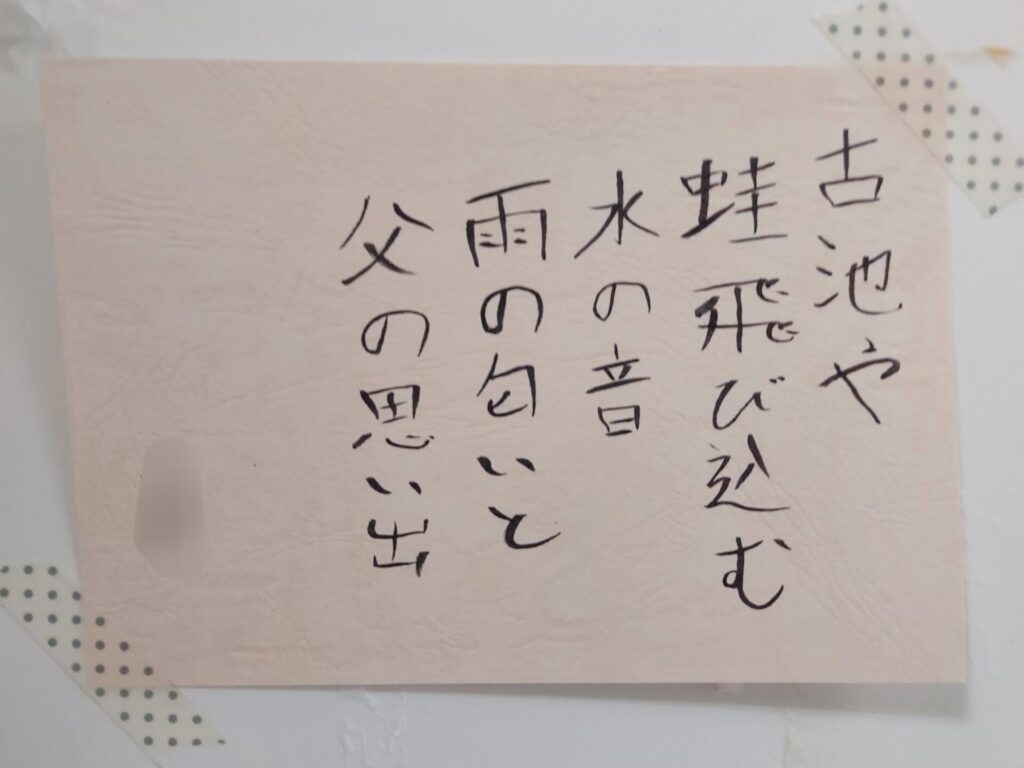 古池や
蛙飛び込む
水の音
雨の匂いと
父の思い出